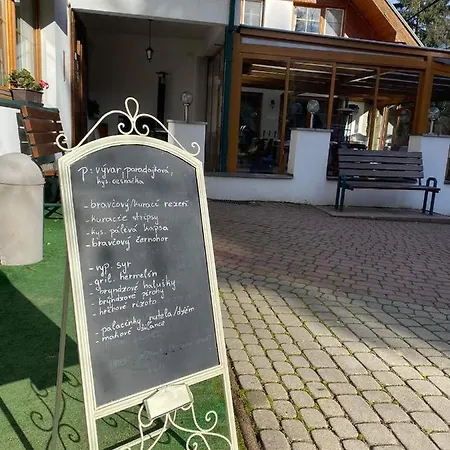 P: vývar paradajková,
kys. cesnačka
- bravčový/kurací rezeň
- kuracie stripsy
- kys. pálivá kapsa
- bravčový černohor
- vyp. syr
- gril. hermelín
- bryndzové halušky
- bryndzové pirohy
- hríbové rizoto
- palacinky nutela/džem
- makové šúľance